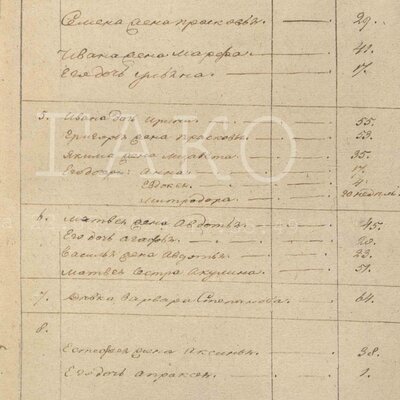 Семена жена Прасковья 29.
Ивана жена Марфа 41.
Его дочь Ульяна 17.
5. Ивана
Григорья жена Прасковья 53.
Якима жена 35.
Его дочери Анна 17.
4.
Митродора 20 недель.
6. Матвея жена Авдотья 45.
Его дочь Агафья 20.
Василья жена Авдотья 23.
Матвея сестра Акулина 51.
7. Варвара Степанова 64.
8.
жена Аксинья 38.
Его дочь Апраксея 1.
ГАКО